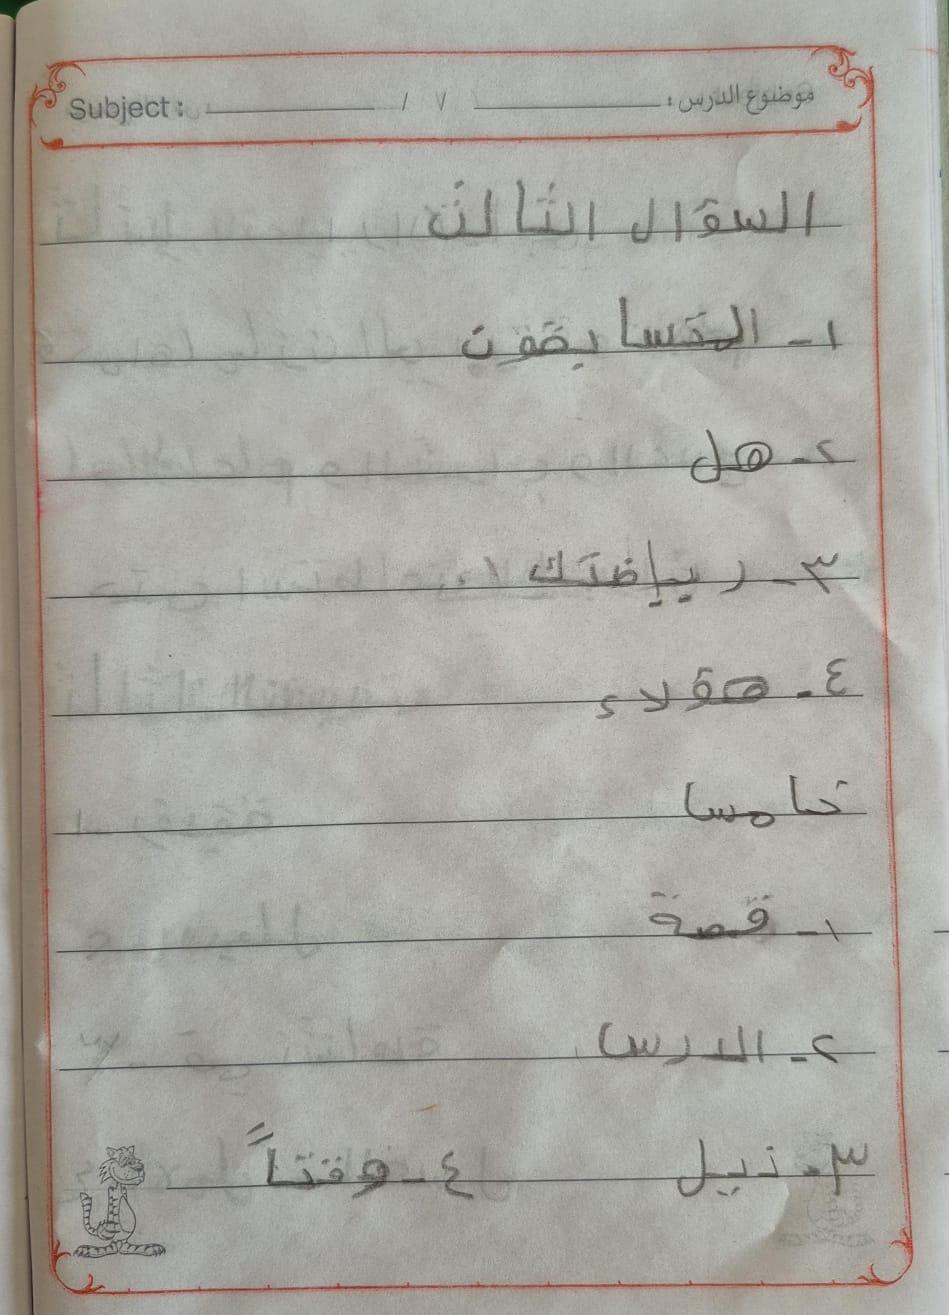 موضوع الدرس : / ٧ Subject :
السؤال الثالث
١- المتسابقون
٢- هل
٣- رياضتك
٤- هؤلاء
خامسا
١- قصة
٢- الدرس
٣- نبيل ٤- وقتاً